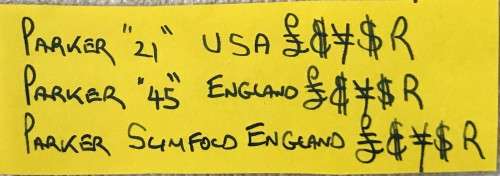 PARKER "21" USA £$¥$ R
PARKER "45" ENGLAND £$¥$ R
PARKER SLIMFOLD ENGLAND £$¥$ R